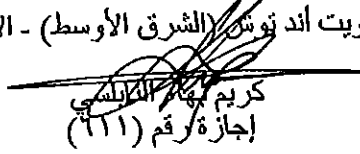 ريت آند توش (الشرق الأوسط) - الا
كريم بهاء النابلسي
إجازة رقم (٦١١)